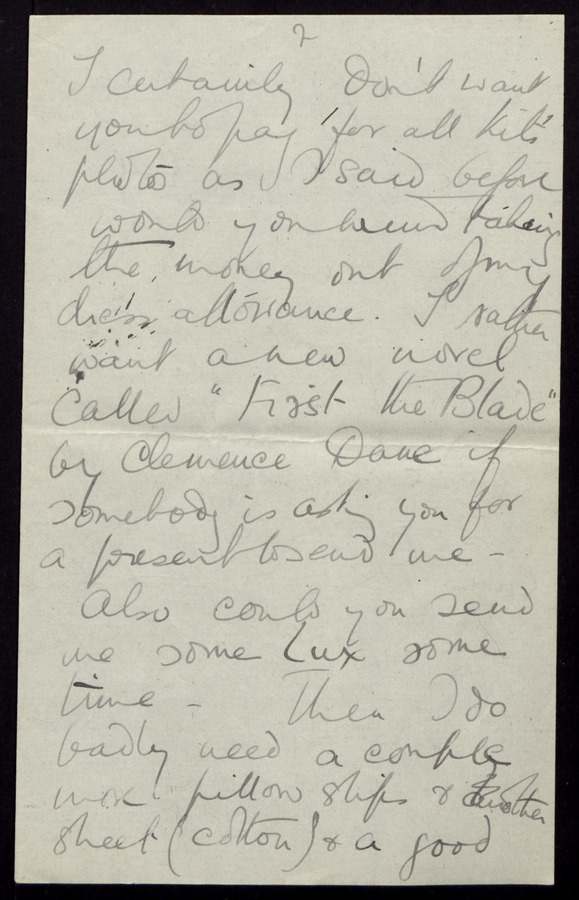 2
I certainly don't want
you to pay for all kits'
photo as I said before
would you mind taking
the money out of my
dress allowance. I rather
want a new novel
called "First the Blade"
by Clemence Dane if
somebody is asking you for
a present to send me -
Also could you send
me some Lux some
time - Then I do
badly need a couple
more pillow slips & another
sheet (cotton) & a good